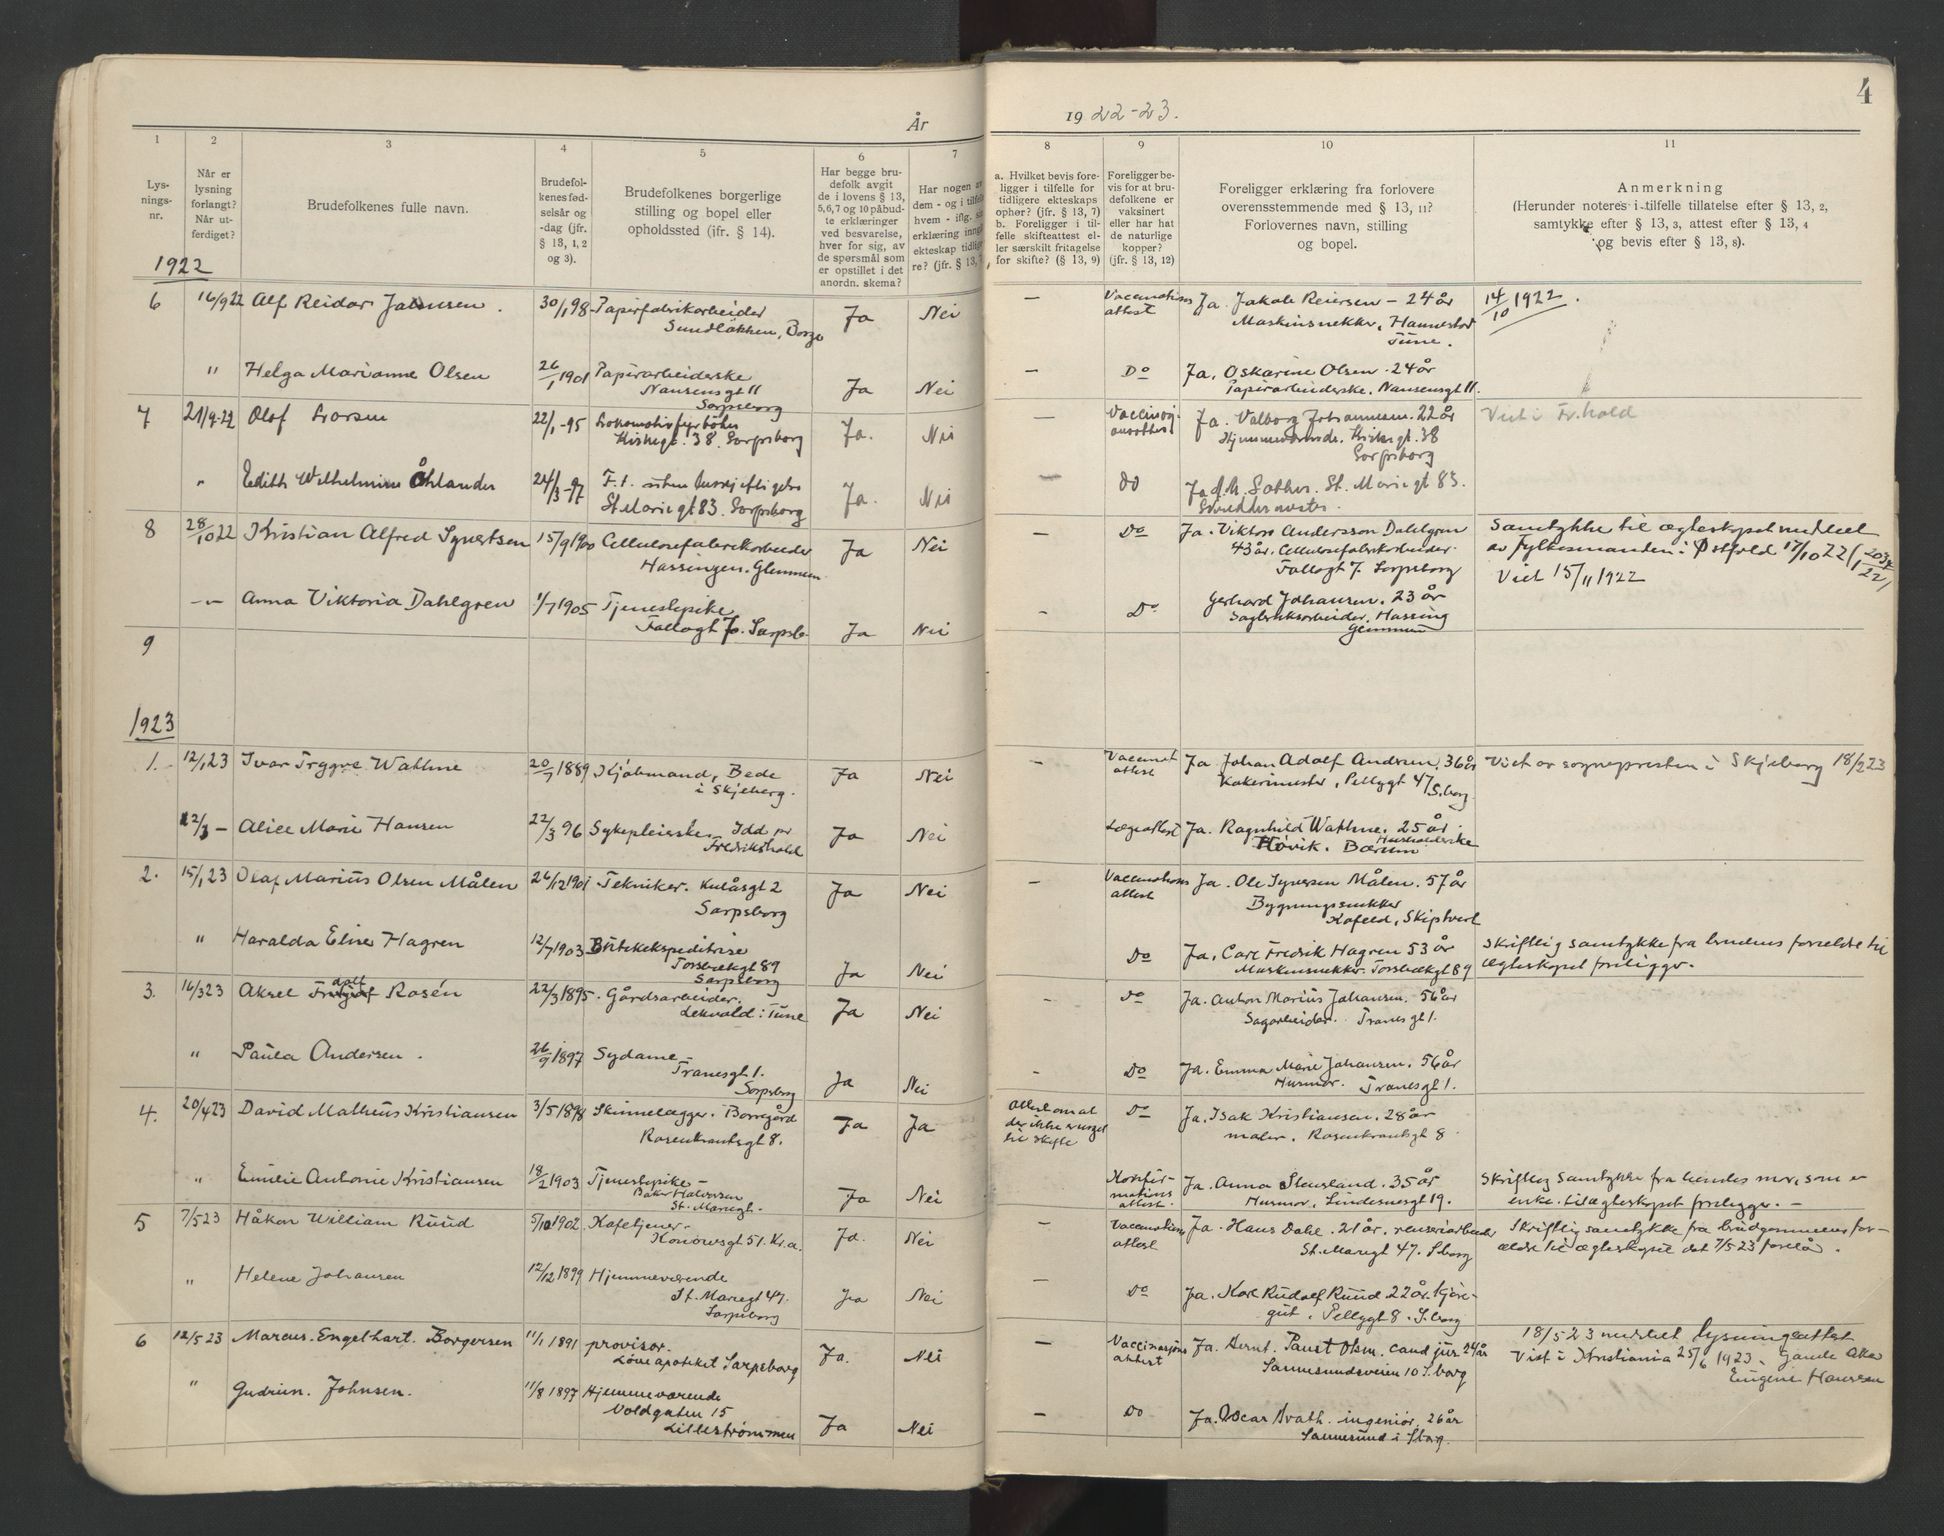 4
År
19 22-23.
1
2
3
4
5
6
7
8
9
10
11
Lys-
nings-
nr.
Når er
lysning
forlangt?
Når ut-
ferdiget?
Brudefolkenes fulle navn.
Brudefol-
kenes fød-
selsår og
-dag (jfr.
§ 13, 1, 2
og 3).
Brudefolkenes borgerlige
stilling og bopel eller
opholdssted (jfr. § 14).
Har begge bru-
defolk avgit
de i lovens § 13,
5,6,7 og 10 påbud-
te erklæringer
ved besvarelse,
hver for sig, av
de spørsmål som
er opstillet i det
anordn. skema?
Har nogen av
dem - og i tilfelle
hvem - iflg. sin
erklæring inngått
ekteskap tidlige-
re? (jfr. § 13, 7
a. Hvilket bevis fore-
ligger i tilfelle for
tidligere ekteskaps
ophør? (jfr. § 13, 7)
b. Foreligger i til-
felle skifteattest el-
ler særskilt fritagelse
for skifte? (§ 13, 9)
Foreligger be-
vis for at bru-
defolkene er
vaksinert
eller har hat
de naturlige
kopper?
(jfr. § 13, 12)
Foreligger erklæring fra forlovere
overensstemmende med § 13, 11?
Forlovernes navn, stilling
og bopel.
Anmerkning
(Herunder noteres i tilfelle tillatelse efter § 13, 2,
samtykke efter § 13, 3, attest efter § 13, 4
og bevis efter § 13, 8).
1922
6 16/9 22 Alf Reidar Jansen. 30/1 98 Papirfabrikarbeider Ja Nei — Vaccinations Ja Jakob Reiersen - 24 år 14/10 1922.
Sundløkken, Borge attest Maskinsnekker, Hannestad
Tune.
" Helga Marianne Olsen 26/1 1901 Papirarbeiderske Ja Nei — Do Ja, Oskarine Olsen. 24 år
Nansensgt 11 Papirarbeiderske. Nansensgt 11.
Sarpsborg
7 21/9-22 Olof Larsen 22/1-95 Lokomotivfyrbøter Ja. Nei — Ja. Valborg Johannesen. 22 år Viet i Fr.hald
Kirkegt. 38. Sarpsborg Hjemmeværende. Kirkegt. 38
Sarpsborg
" Edith Wilhelmine Åhlander 24/3-97 F.t. uten beskjeftigelse Ja. Nei — do Ja St. Mariegt 83.
St Mariegt 83. Sarpsborg Skreddermester.
8 28/10 22 Kristian Alfred Syvertsen 15/9 1900 Cellulosefabrikarbeider Ja Nei — Do Ja. Viktor Andersson Dahlgren Samtykke til ægteskapet meddelt
Hassingen. Glemmen 43 år. Cellulosefabrikarbeider. av Fylkesmanden i Østfold 17/10 22
Fallogt 7. Sarpsborg Viet 15/11 1922
-"- Anna Viktoria Dahlgren 1/7 1905 Tjenestepike Ja Nei — Do Gerhard Johansen. 23 år
Fallogt 7. Sarpsb. Hassing
Glemmen
9
1923
1. 12/1 23 Ivar Trygve Wathne 20/7 1889 Kjøbmand, Bede Ja Nei Vaccinat. Ja Johan Adolf Andrén. 36 år Viet av sognepresten i Skjeberg 18/2 23
i Skjeberg. attest Kakerimester, Pellygt 47 S.borg
12/3 - Alice Marie Hansen 22/3 96 Sykepleierske. Idd pr Ja Nei Lægeattest Ja. Ragnhild Wathne. 25 år.
Fredrikshald Husholderske
Høvik. Bærum
2. 15/1 23 Olaf Marius Olsen Målen 26/12 1901 Tekniker. Kulåsgt 2 Ja Nei — Vaccinations Ja. Ole Syversen Målen. 57 år
Sarpsborg attest Bygningssnekker
Skiptvet
" Haralda Elise Hagren 12/7 1903 Butikekspeditrise Ja Nei Do Ja, Carl Fredrik Hagren 53 år Skriftlig samtykke fra brudens forældre til
Torsbækgt 89 Maskinsnekker. Torsbækgt 89 ægteskapet foreligger.
Sarpsborg
3. 16/3 23 Aksel Rosén 22/3 1895. Gårdsarbeider. Ja Nei — Do Ja. Anton Marius Johansen. 56 år
Lekvold i Tune Sagarbeider. Tranesgt 1.
" Paula Andersen. 26/9 1897 Sydame Ja Nei - Do Ja. Emma Marie Johansen. 56 år
Tranesgt 1. Husmor. Tranesgt 1.
Sarpsborg
4. 20/4 23 David Matheus Kristiansen 3/5 1898 Skinnelægger. Borregård Ja Ja Attest om at Do Ja. Isak Kristiansen. 28 år
Rosenkrantsgt 8. der ikke er noget maler. Rosenkrantsgt 8.
til skifte
" Emilie Antonie Kristiansen 18/2 1903 Tjenestepike Ja Nei Konfir- Ja. Anna 35 år Skriftlig samtykke fra hendes mor, som er
Baker Halvorsen mations Husmor, Lindesnesgt 19. enke. til ægteskapet foreligger. -
St. Mariegt. attest.
5 7/5 23 Håkon William Ruud 5/10 1902. Kafetjener. Ja. Nei — Vaccinations Ja. Hans Dahl. 21 år. renseriarbeider Skriftlig samtykke fra brudgommens for-
Konowsgt 51. Kr.a. attest St. Mariegt 47. Sborg ældre til ægteskapet dat 7/5 23 forelå.
" Helene Johansen 12/12 1899 Hjemmeværende Ja Nei — Do Ja. Karl Rudolf Ruud. 22 år. kjøre-
St. Mariegt 47. gut. Pellygt 8. S.borg
Sarpsborg
6 12/5 23 Marcus. Engelhart. Borgersen 11/1 1891 provisor. Ja. Nei — Vaccinasjons Ja. Bernt. Olsen. cand jur 24 år 18/5 23 meddelt lysningsattest
Løveapoteket Sarpsborg attest Sannesundsveien 10 S.borg Viet i Kristiania 25/6 1923 - Gamle Aker
Eugene Hanssen
" Gudrun. Johnsen. 11/8 1897 Hjemmeværende Ja Nei — Do Ja. Oscar ingeniør. 26 år
Voldgaten 15 Sannesund i Sborg.
Lillestrømmen